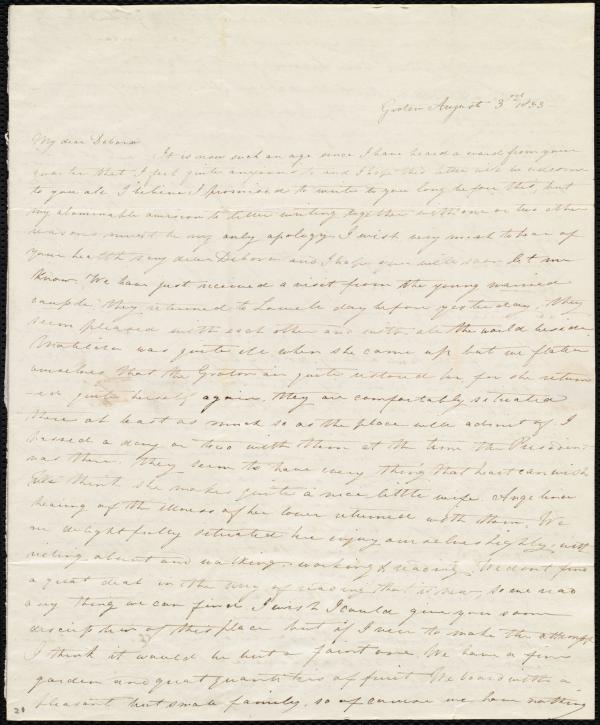 Groton August 3rd 1833
My dear Debora
It is now such an age since I have heard a word from your
quarter that I feel quite anxious to and I hope this letter will be welcome
to you all. I believe I promised to write to you long before this, but
my abominable aversion to letter writing together with one or two other
reasons must be my only apology. I wish very much to hear of
your health my dear Debora and I hope you will soon let me
know. We have just received a visit from the young married
couple they returned to Lowell day before yesterday, they
seem pleased with each other and with all the world beside
was quite ill when she came up but we flatter
ourselves that the Groton air quite restored her for she return
ed quite herself again. they are comfortably situated
there at least as much so as the place will admit of. I
passed a day or two with them at the time the President
was there. They seem to have every thing that heart can wish
think she makes quite a nice little wife Angelina
hearing of the illness of her lover returned with them. We
are delightfully situated here enjoy ourselves highly, with
riding about and walking, working & reading. We dont find
a great deal in the way of reading that is new, so we read
any thing we can find. I wish I could give you some
description of this place but if I were to make the attempt
I think it would be but a faint one. We have a fine
garden and great quantities of fruit. We board with a
pleasant but small family, so of course we have nothing